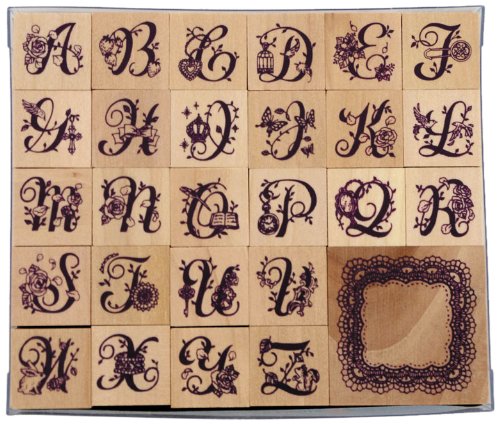 A B C D E F
G H I J K L
M N O P Q R
S T U V
W X Y Z